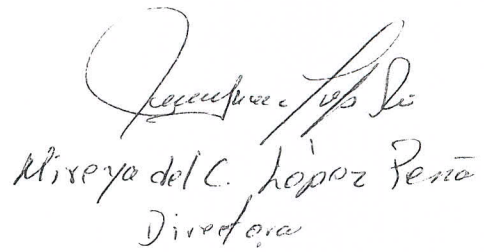 Mireya del C. López Peña
Directora